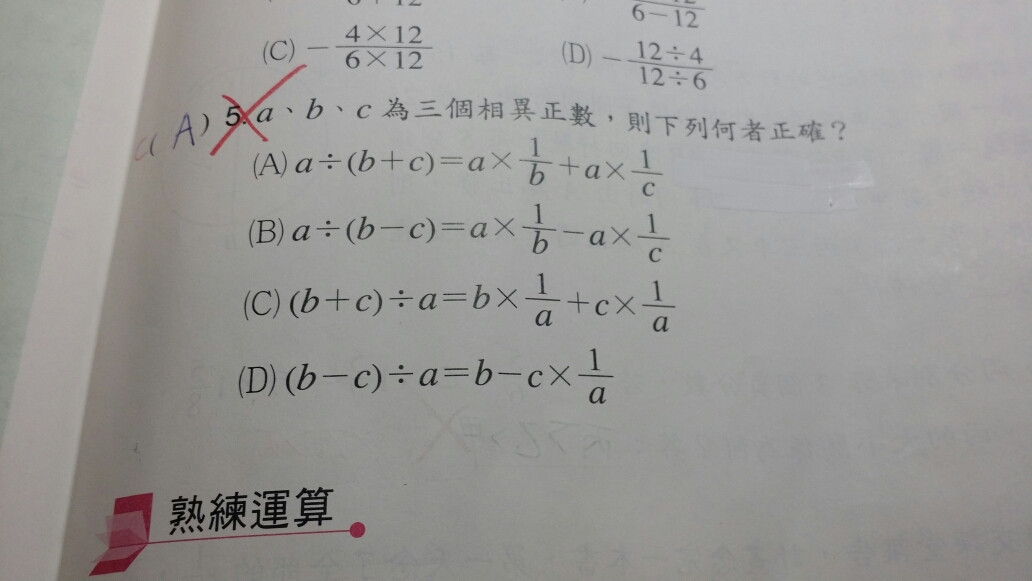 6−12
(C) −4×12/6×12
(D) −12÷4/12÷6
(A) 5. a、b、c 為三個相異正數，則下列何者正確？
(A) a÷(b+c)=a×1/b+a×1/c
(B) a÷(b−c)=a×1/b−a×1/c
(C) (b+c)÷a=b×1/a+c×1/a
(D) (b−c)÷a=b−c×1/a
熟練運算